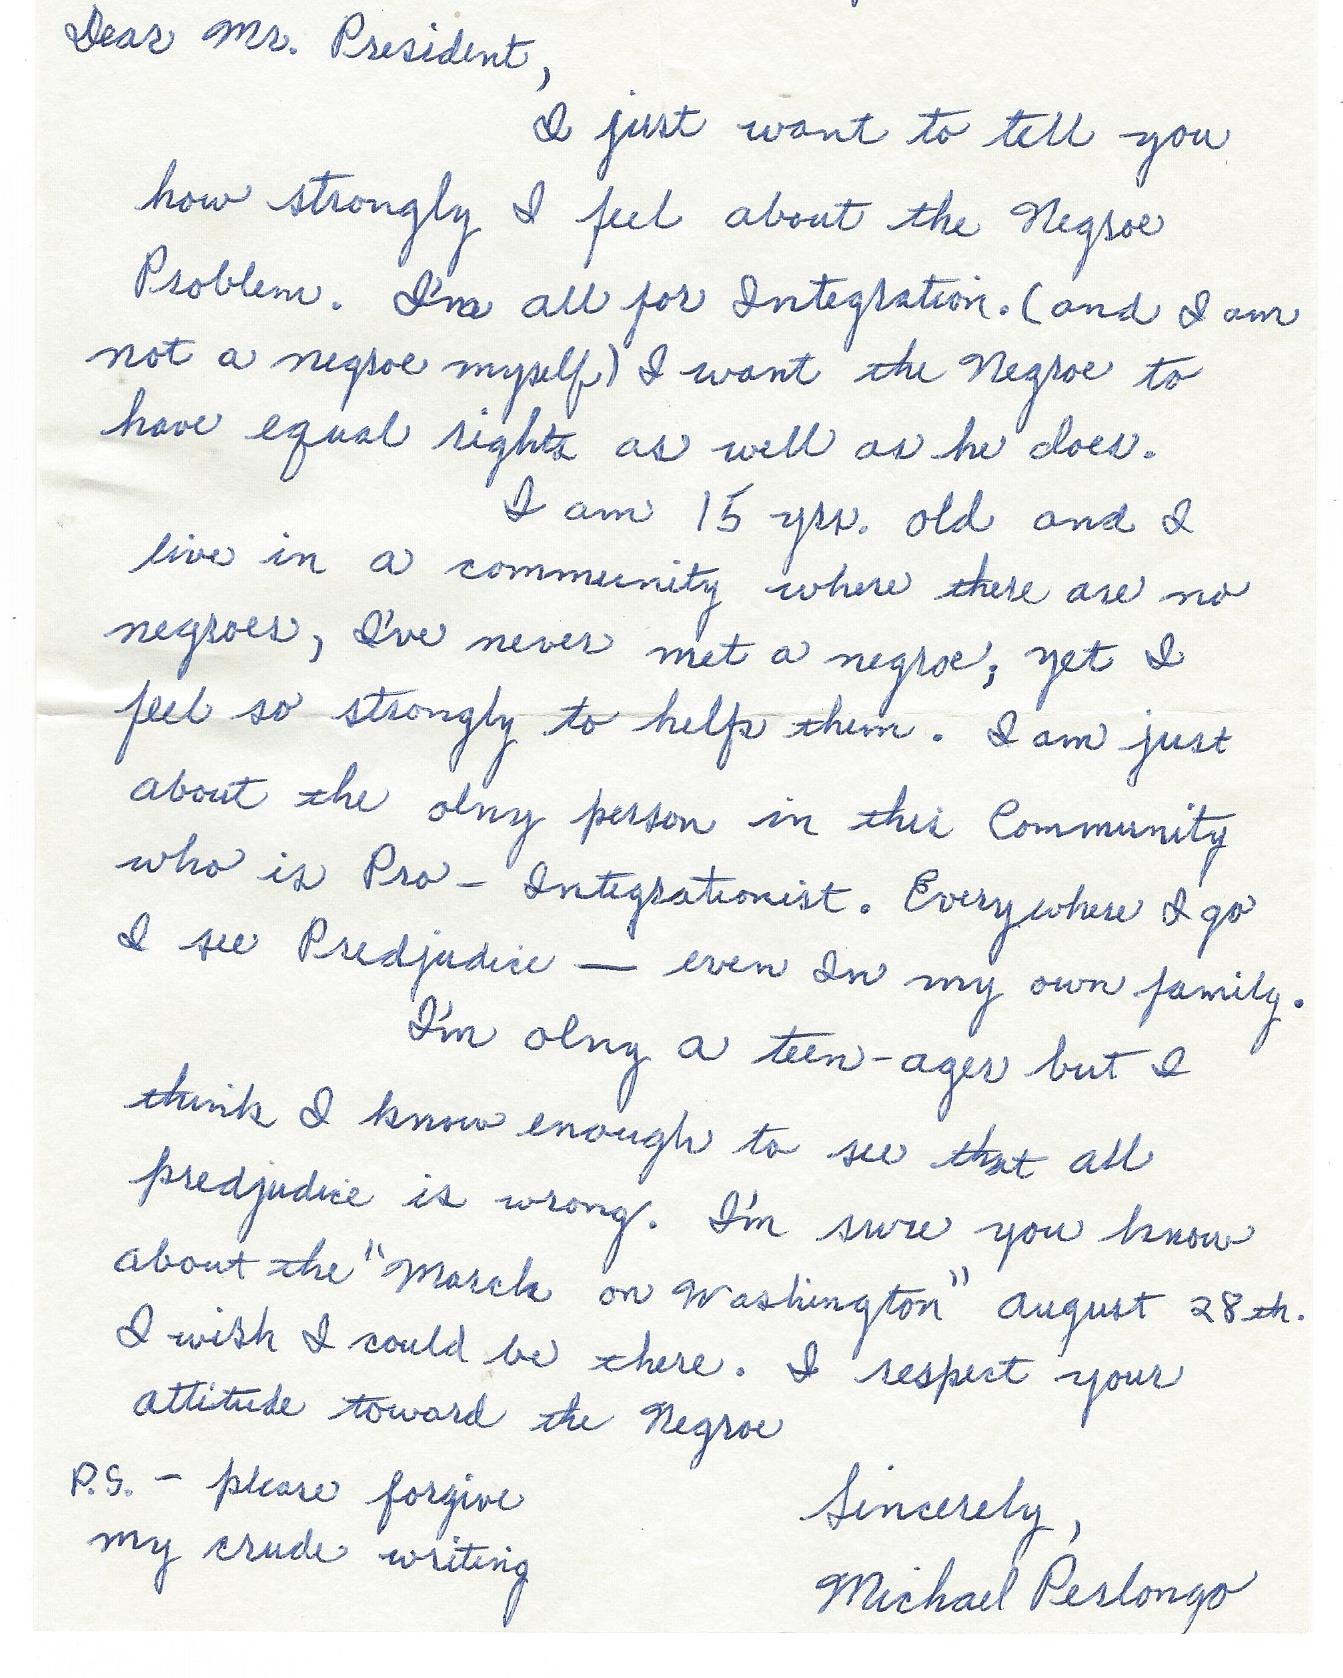 Dear Mr. President,
I just want to tell you
how strongly I feel about the Negroe
Problem. I'm all for Integration. (and I am
not a negroe myself) I want the Negroe to
have equal rights as well as he does.
I am 15 yrs. old and I
live in a community where there are no
negroes, I've never met a negroe; yet I
feel so strongly to help them. I am just
about the olny person in this Community
who is Pro - Integrationist. Everywhere I go
I see Predjudice — even In my own family.
I'm olny a teen-ager but I
think I know enough to see that all
predjudice is wrong. I'm swre you know
about the "March on Washington" August 28th.
I wish I could be there. I respect your
attitude toward the Negroe
P.S. - please forgive
my crude writing
Sincerely,
Michael Perlongo